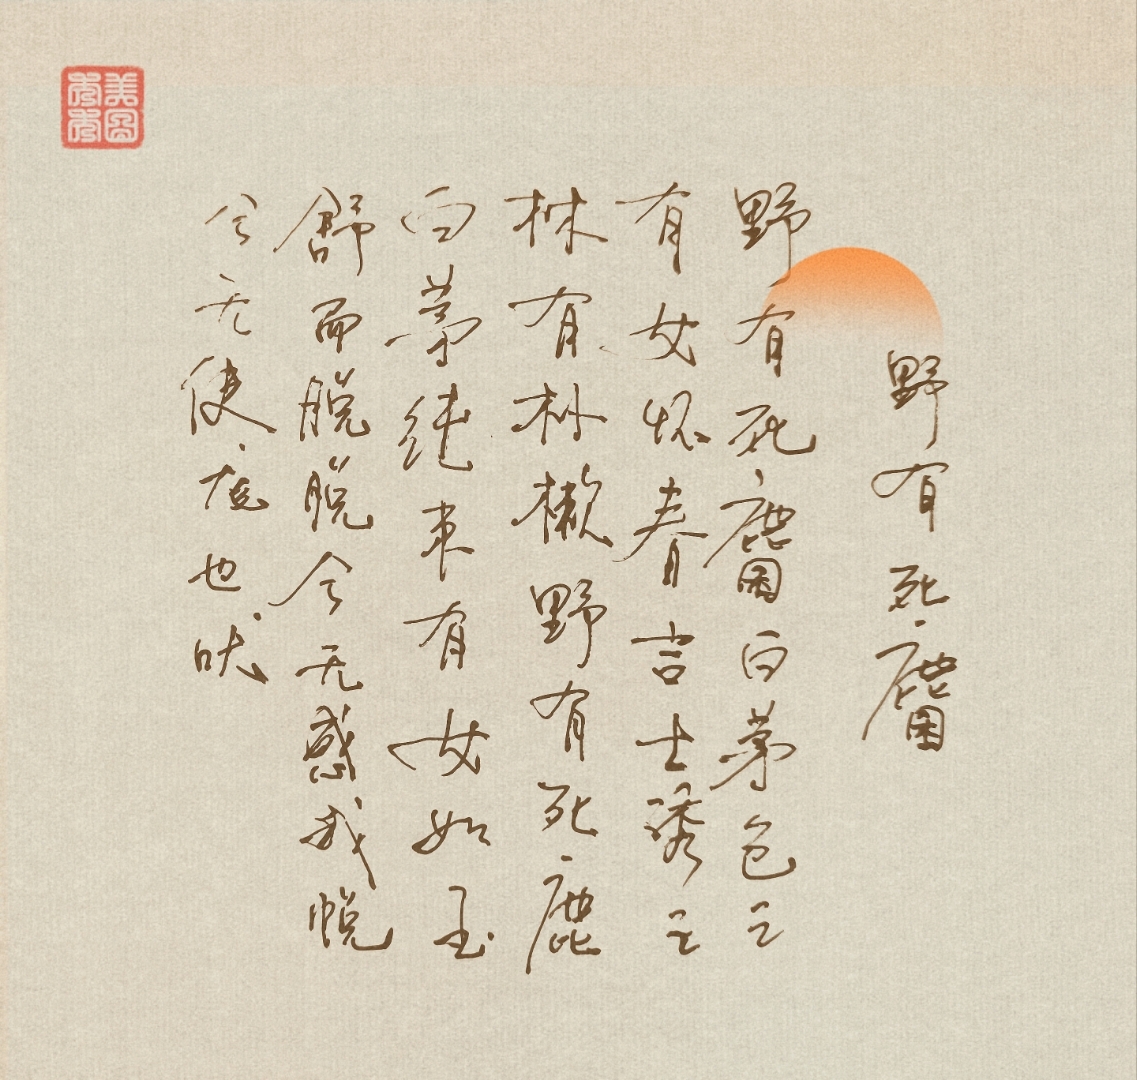 野有死麕
野有死麕白茅包之
有女怀春吉士诱之
林有朴樕野有死鹿
白茅纯束有女如玉
舒而脱脱兮无感我帨
兮无使尨也吠
美图秀秀